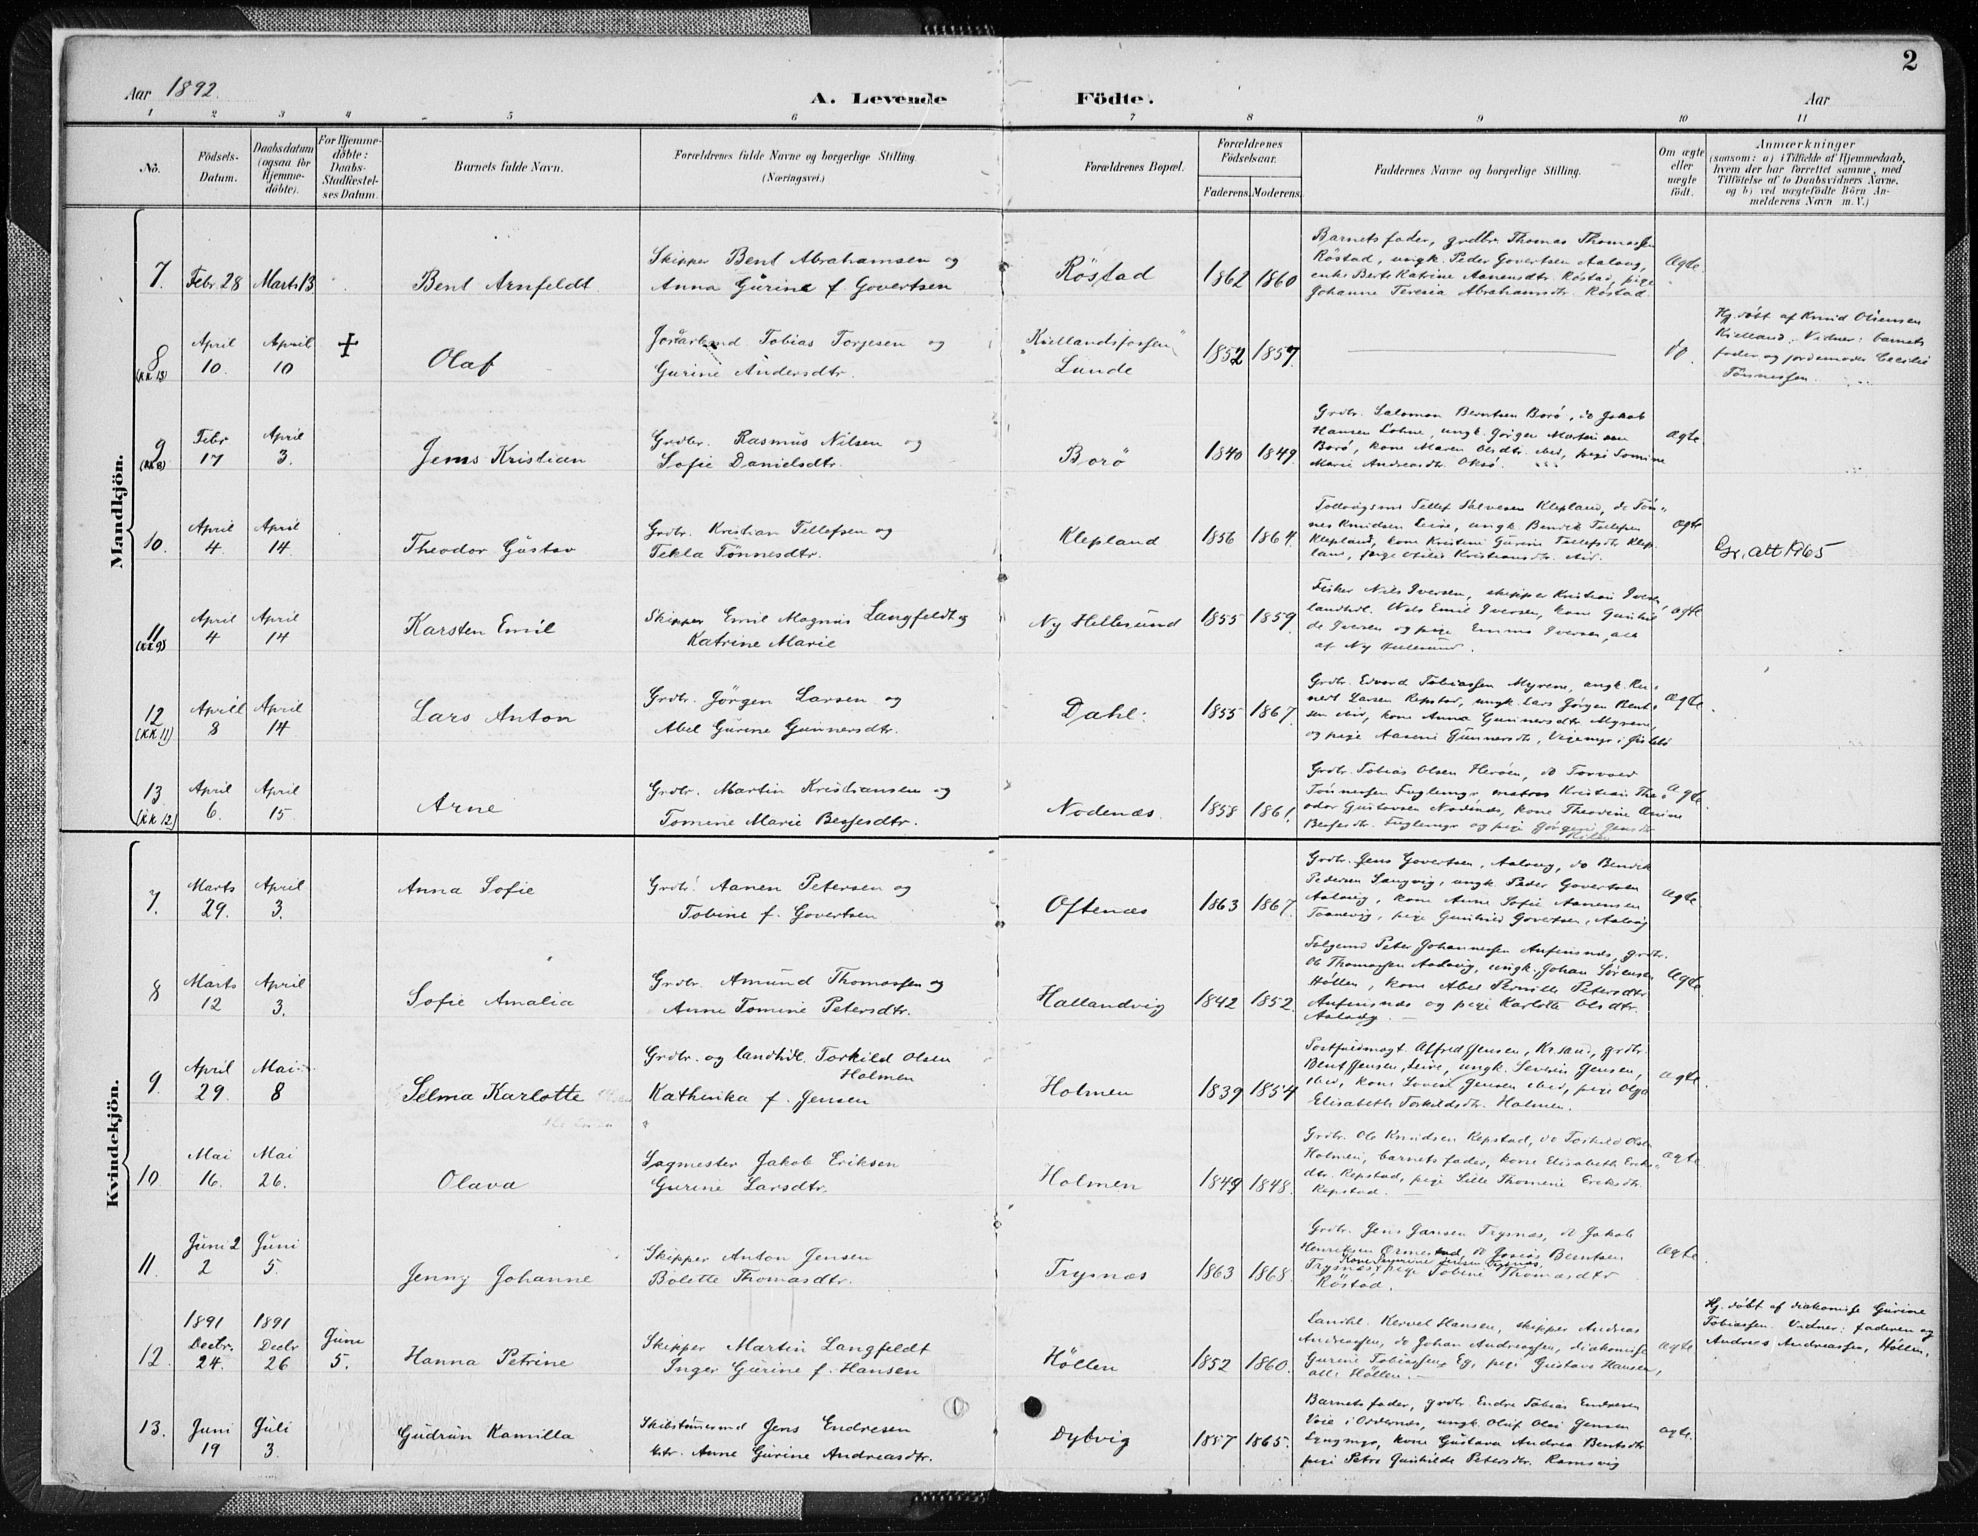 2
Aar 1892.
A. Levende Födte.
Aar
1 2 3 4 5 6 7 8 9 10 11
No. Födsels-Datum. Daabsdatum (ogsaa for Hjemmedöbte). For Hjemmedöbte: Daabs-Stadfæstelses Datum. Barnets fulde Navn. Forældrenes fulde Navne og borgerlige Stilling. (Næringsvei.) Forældrenes Bopæl. Forældrenes Födselsaar. Faderens. Moderens. Faddernes Navne og borgerlige Stilling. Om ægte eller uægte födt. Anmærkninger (saasom: a) i Tilfælde af Hjemmedaab, hvem der har forrettet samme, med Tilföielse af to Daabsvidners Navne, og b) ved uægtefödte Börn Anmelderens Navn m. V.)
Mandkjön.
7. Febr 28 Marts 13 Bent Arnfeldt.
Skipper Bent Abrahamsen og
Anna Gurine f. Govertsen
Röstad 1862 1860
Barnets fader, grdbr. Thomas Thomassen
Röstad, ungk. Peder Govertsen Aalovig,
enke Berte Katrine Aanensdtr. Röstad, pige
Johanne Teresia Abrahamsdtr. Röstad.
Ægte.
8 (KK 13) April 10. April 10 + Olaf
Tobias Torjesen og
Gurine Andersdtr.
Kjellandsfossen
Lunde 1852 1857.
do.
Hj. döbt af Knud Olsensen
Kjelland. Vidner: barnets
fader og jordemoder Cecilie
Tönnessen.
9 (KK 8) Febr 17 April 3. Jens Kristian
Grdbr. Rasmus Nilsen og
Sofie Danielsdtr.
Borö 1840 1849.
Grdbr. Salomon Berntsen Borö, do Jakob
Hansen Lohne, ungk. Jörgen
Borö, kone Maren Olsdtr. ibid, pige Tomine
Marie Andreasdtr. Oksö.
ægte
10. April 4. April 14. Theodor Gustav
Grdbr. Kristian Tellefsen og
Tekla Tönnesdtr.
Klepland 1856 1864.
Tellef Salvesen Klepland, do Tön-
nes Knudsen Leire, ungk. Bendik Tellefsen
Klepland, kone Kristine Gurine Tellefsdtr Klep-
land, pige Otilie Kristiansdtr. ibid.
ægte
Gr. att 1965
11 (KK 9) April 4 April 14 Karsten Emil
Skipper Emil Magnus Langfeldt og
Katrine Marie
Ny Hellesund 1855 1859
Fisker Nils Iversen, skipper Kristian Iversen
landhdl. Nils Emil Iversen, kone Gunhil-
de Iversen og pige Emma Iversen, alle
af Ny Hellesund.
ægte
12 (KK 11) April 8 April 14 Lars Anton
Grdbr. Jörgen Larsen og
Abel Gurine Gunnersdtr.
Dahl. 1855 1867.
Grdbr. Edvard Tobiassen Myrene, ungk. Rei-
nert Larsen Repstad, ungk. Lars Jörgen Bent-
sen ibid, kone Anna Gunnersdtr Myrene,
og pige Aasene Gunnersdtr, Vigemyr i Öislebö
ægte.
13 (KK 12) April 6. April 15. Arne
Grdbr. Martin Kristiansen og
Tomine Marie Bessesdtr.
Nodenæs. 1858 1861.
Grdbr. Tobias Olsen Heröen, do Torvald
Tönnessen Fuglemyr, matros Kristian The-
odor Gustavsen Nodenæs, kone Theodine Amine
Bessesdtr. Fuglemyr og pige Jörgine Jensdtr
ægte.
Kvindekjön.
7. Marts 29. April 3. Anna Sofie
Grdbr. Aanen Petersen og
Tobine f. Govertsen
Oftenæs 1863 1867.
Grdbr. Jens Govertsen, Aalovig, do Bendik
Pedersen Langvig, ungk. Peder Govertsen
Aalovig, kone Anne Sofie Aanensen
Toanevig, pige Gunhild Govertsen, Aalovig
ægte
8 Marts 12 April 3. Sofie Amalia
Grdbr. Amund Thomassen og
Anne Tomine Petersdtr.
Hallandvig 1842 1852.
Peter Johannessen Aufinsnæs, grdbr.
Ole Thomassen Aalovig, ungk. Johan Sörensen
Höllen, kone Abel Pernille Petersdtr
Aufinsnæs og pige Karlotte Olsdtr.
Aalovig.
Ægte.
9. April 29. Mai 8 Selma Karlotte
Grdbr. og landhdl. Torkild Olsen
Holmen
Kathinka f. Jensen
Holmen 1839 1854
Postfuldmægt. Alfred Jensen, Kr.sand, grdbr.
Bent Jensen, Leire, ungk. Severin Jensen,
ibid, kone Lovise Jensen ibid, pige Olga
Elisabeth Torkildsdtr. Holmen.
ægte.
10. Mai 16. Mai 26. Olava
Sagmester Jakob Eriksen
Gurine Larsdtr.
Holmen 1849 1848.
Grdbr. Ole Knudsen Repstad, do Torkild Olsen
Holmen, barnets fader, kone Elisabeth Eriks-
dtr. Repstad, pige Sille Thomine Eriksdtr.
Repstad.
ægte.
11. Juni 2 2 Juni 5. Jenny Johanne
Skipper Anton Jensen
Bolette Thomasdtr.
Trysnæs 1863 1868.
Grdbr. Jens Jansen Trysnæs, do Jakob
Henriksen Ormestad, do Josias Berntsen
Trysnæs, pige Tobine Thomasdtr
Röstad.
Ægte
12. 1891 Decbr. 24. 1891 Decbr 26 Juni 5. Hanna Petrine
Skipper Martin Langfeldt
Inger Gurine f. Hansen
Höllen 1852 1860.
Landhl. Kervel Hansen, skipper Andreas
Andreassen, do Johan Andreassen, diakonisse
Gurine Tobiassen, Eg, pige Gustava Hansen,
alle Höllen.
ægte
Hj. döbt af diakonisse Gurine
Tobiassen. Vidner: faderen og
Andreas Andreassen, Höllen.
13. Juni 19 Juli 3. Gudrun Kamilla
Skibstömmermd Jens Endresen
Anne Gurine Andreasdtr.
Dybvig 1857 1865.
Barnets fader, grdbr. Endre Tobias Endresen
Voie i Oddernæs, ungk. Oluf Olai Jensen
Lyngmyr, kone Gustava Andrea Bentsdtr
pige Petra Gunhilde Petersdtr. Ramsvig
ægte.